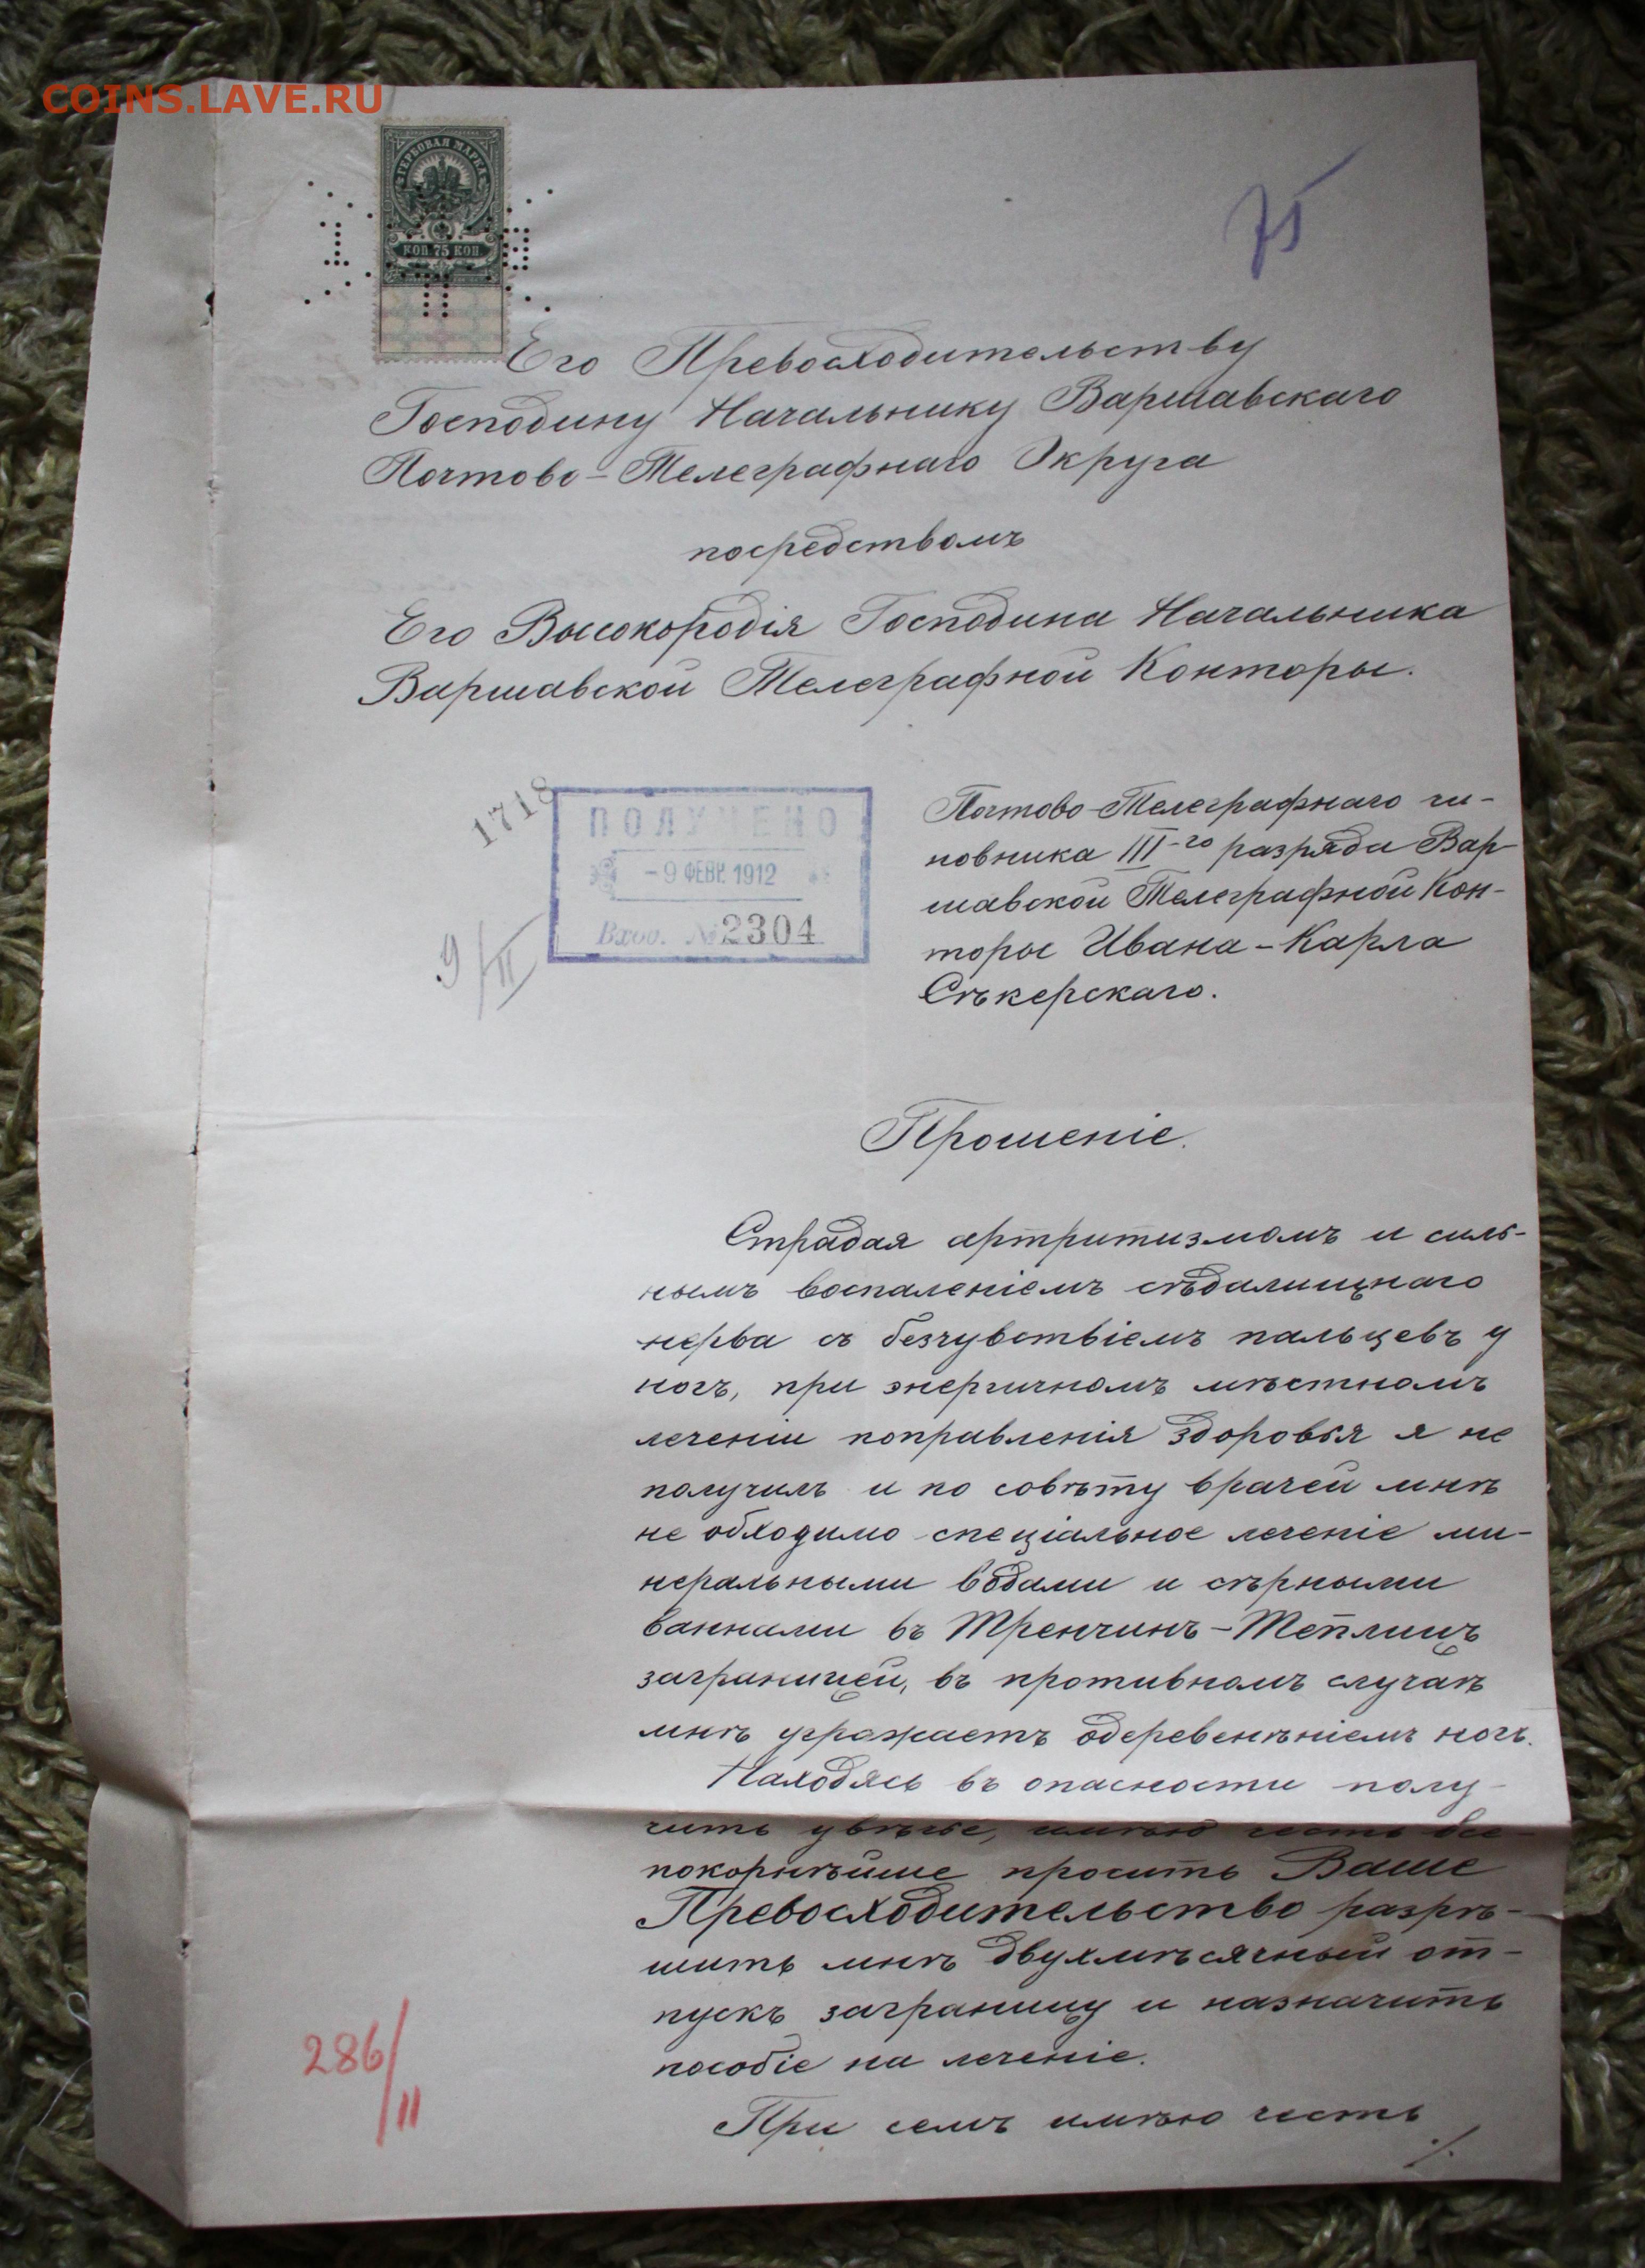 COINS.LAVE.RU
ГЕРБОВАЯ МАРКА
КОП. 75 КОП.
75
Его Превосходительству
Господину Начальнику Варшавскаго
Почтово-Телеграфнаго Округа
посредствомъ
Его Высокородія Господина Начальника
Варшавской Телеграфной Конторы.
1718
ПОЛУЧЕНО
-9 ФЕВР. 1912
Вход. № 2304
9/II
Почтово-Телеграфнаго чи-
новника III-го разряда Вар-
шавской Телеграфной Кон-
торы Ивана-Карла
Сѣкерскаго.
Прошеніе.
Страдая артритизмомъ и силь-
нымъ воспаленіемъ сѣдалищнаго
нерва съ безчувствіемъ пальцевъ у
ногъ, при энергичномъ мѣстномъ
леченіи поправленія здоровья я не
получилъ и по совѣту врачей мнѣ
не обходимо спеціальное леченіе ми-
неральными водами и сѣрными
ваннами въ Тренчинъ-Теплицъ
заграницей, въ противномъ случаѣ
мнѣ угрожаетъ одеревенѣніемъ ногъ.
Находясь въ опасности полу-
чить увѣчье, имѣю честь все-
покорнѣйше просить Ваше
Превосходительство разрѣ-
шить мнѣ двухмѣсячный от-
пускъ заграницу и назначить
пособіе на леченіе.
При семъ имѣю честь
./.
286/II